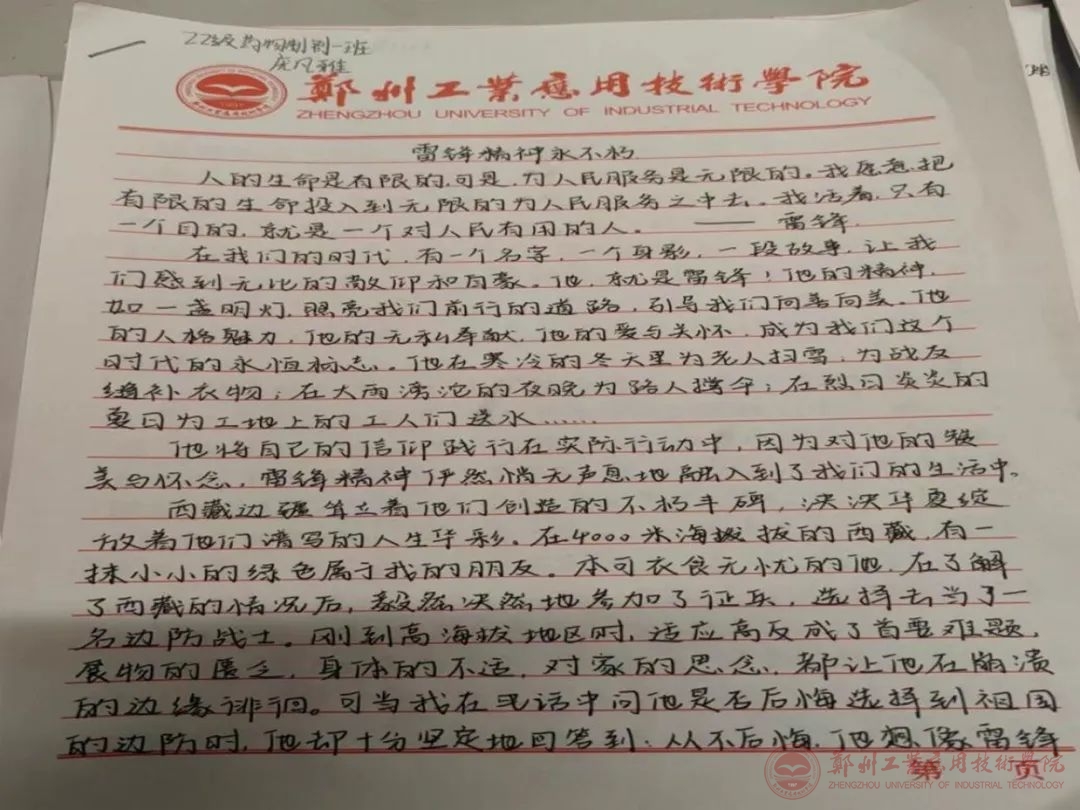 22级药物制剂一班
庞凡雅
鄭州工業應用技術學院
ZHENGZHOU UNIVERSITY OF INDUSTRIAL TECHNOLOGY
雷锋精神永不朽
人的生命是有限的,可是,为人民服务是无限的。我愿意把
有限的生命投入到无限的为人民服务之中去。我活着,只有
一个目的,就是一个对人民有用的人。——雷锋
在我们的时代,有一个名字,一个身影,一段故事,让我
们感到无比的敬仰和自豪。他,就是雷锋!他的精神,
如一盏明灯,照亮我们前行的道路,引导我们向善向美。他
的人格魅力,他的无私奉献,他的爱与关怀,成为我们这个
时代的永恒标志。他在寒冷的冬天里为老人扫雪,为战友
缝补衣物;在大雨滂沱的夜晚为路人撑伞;在烈日炎炎的
夏日为工地上的工人们送水……
他将自己的信仰践行在实际行动中,因为对他的赞
美与怀念,雷锋精神伊然悄无声息地融入到了我们的生活中。
西藏边疆耸立着他们创造的不朽丰碑,泱泱华夏绽
放着他们谱写的人生华彩。在4000米海拔的西藏,有一
抹小小的绿色属于我的朋友。本可衣食无忧的他,在了解
了西藏的情况后,毅然决然地参加了征兵,选择去当了一
名边防战士。刚到高海拔地区时,适应高反成了首要难题,
物的匮乏,身体的不适,对家的思念,都让他在崩溃
的边缘徘徊。可当我在电话中问他是否后悔选择到祖国
的边防时,他却十分坚定地回答到:从不后悔,他想像雷锋
第 页
鄭州工業應用技術學院
ZHENGZHOU UNIVERSITY OF INDUSTRIAL TECHNOLOGY